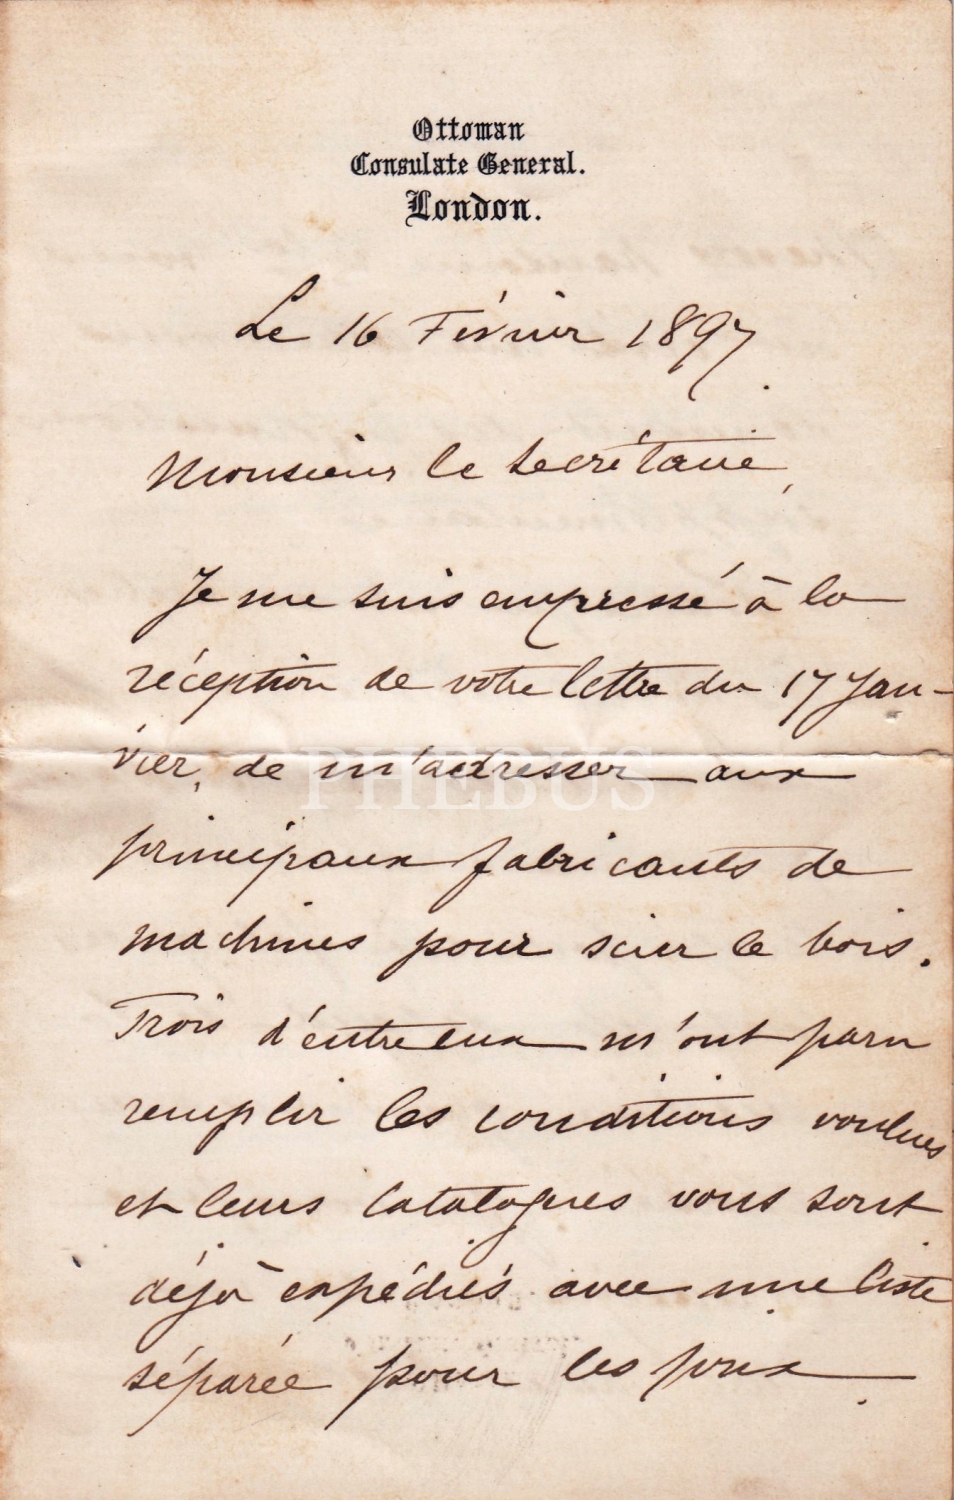 Ottoman
Consulate General.
London.
Le 16 Février 1897.
Monsieur le Secrétaire,
Je me suis empressé à la
réception de votre lettre du 17 Jan-
vier, de m'adresser aux
PHEBUS
principaux fabricants de
machines pour scier le bois.
Trois d'entre eux m'ont paru
remplir les conditions voulues
et leurs catalogues vous sont
déjà expédiés avec une liste
séparée pour les prix.